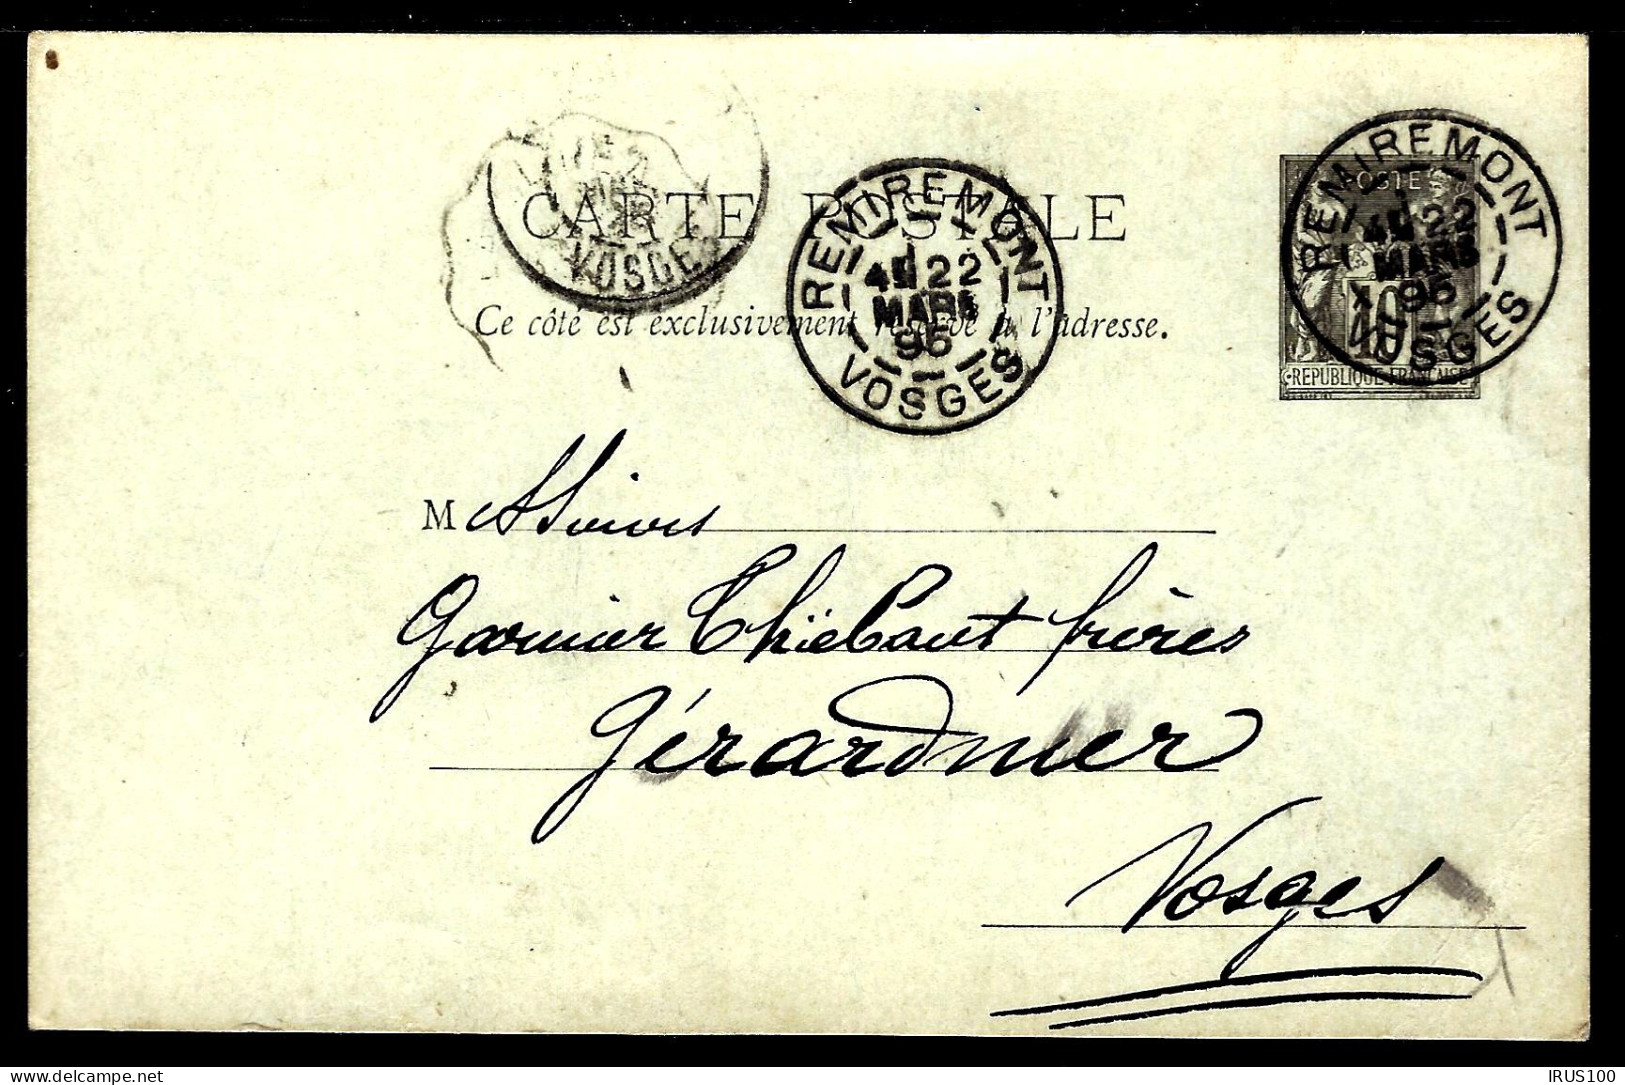 CARTE POSTALE
Ce côté est exclusivement réservé à l'adresse.
VOSGES
REMIREMONT
22
MARS
95
VOSGES
REMIREMONT
22
MARS
95
VOSGES
POSTES
10
REPUBLIQUE FRANÇAISE
Messieurs
Garnier Thiébaut frères
Gérardmer
Vosges
delcampe.net
IRUS100